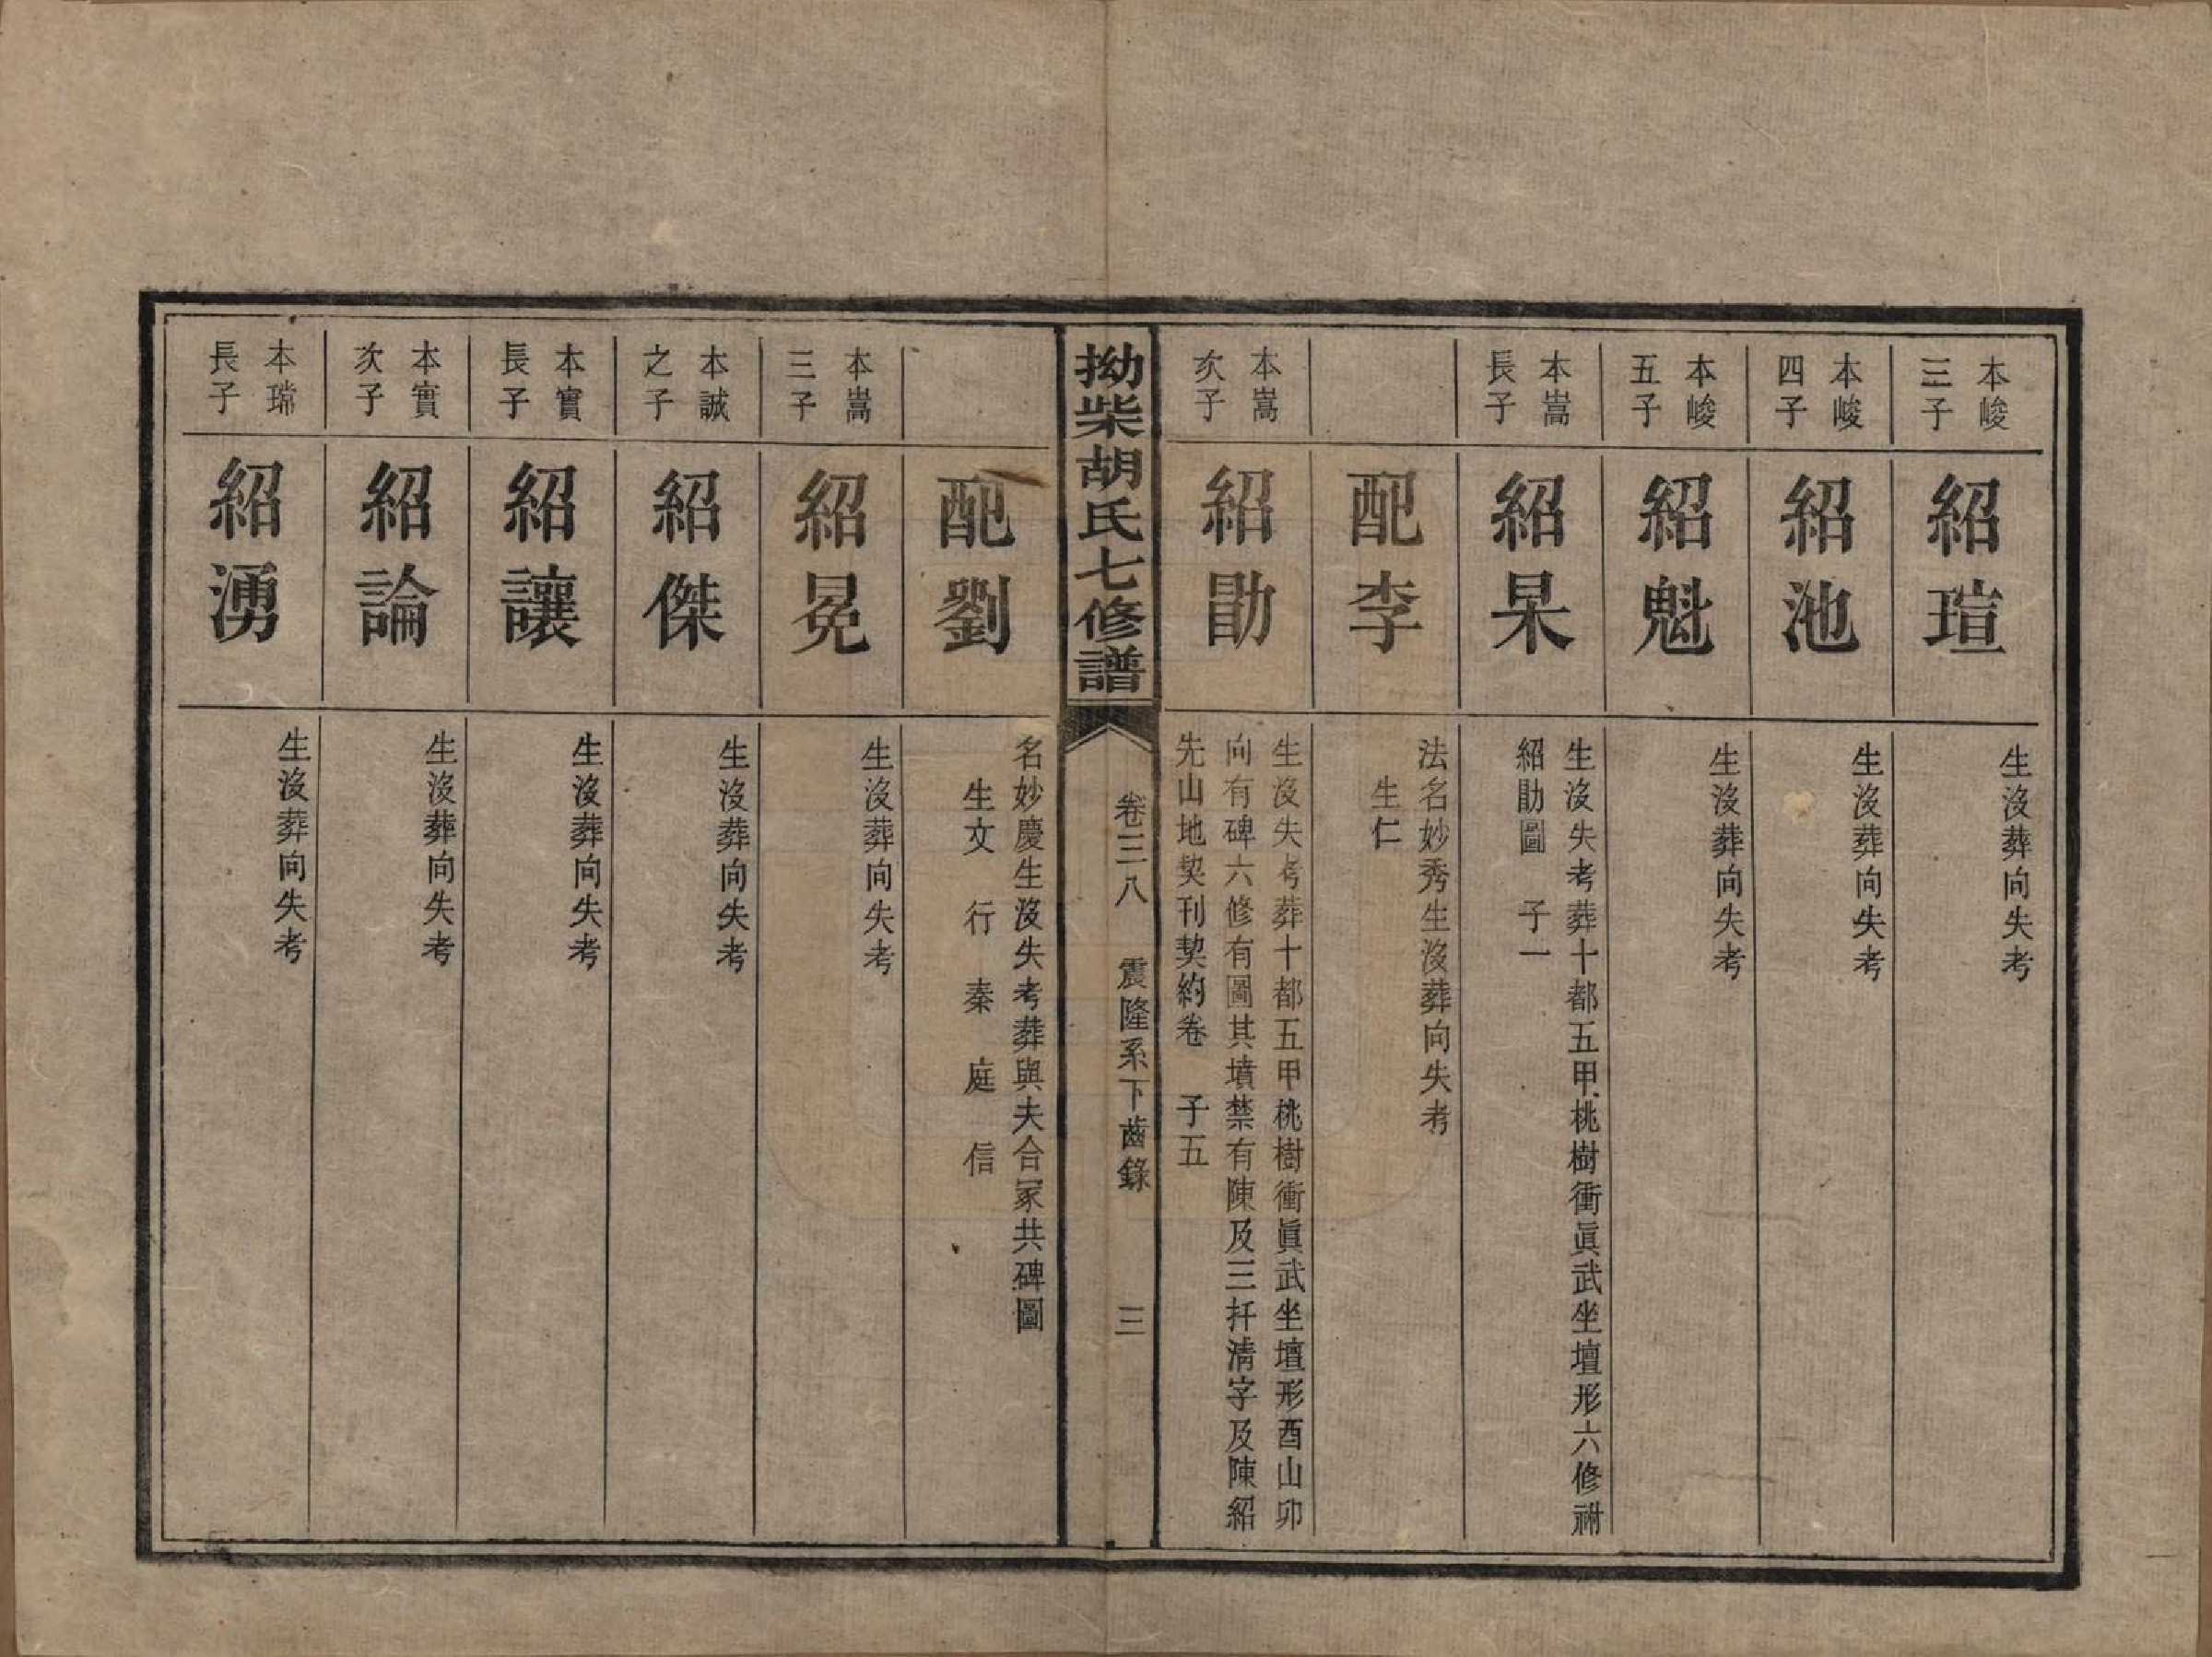 本峻
三子
紹瑄
生沒葬向失考
本峻
四子
紹池
生沒葬向失考
本峻
五子
紹魁
生沒葬向失考
本嵩
長子
紹杲
生沒失考葬十都五甲桃樹衝眞武坐壇形六修祔
紹勛圖　子一
配李
法名妙秀生沒葬向失考
生仁
本嵩
次子
紹勛
生沒失考葬十都五甲桃樹衝眞武坐壇形酉山卯
向有碑六修有圖其墳禁有陳及三扦淸字及陳紹
先山地契刊契約卷　子五
拗柴胡氏七修譜
卷三八　震隆系下齒錄　三
配劉
名妙慶生沒失考葬與夫合冢共碑圖
生文　行　秦　庭　信
本嵩
三子
紹冕
生沒葬向失考
本誠
之子
紹傑
生沒葬向失考
本實
長子
紹讓
生沒葬向失考
本實
次子
紹論
生沒葬向失考
本瑞
長子
紹湧
生沒葬向失考